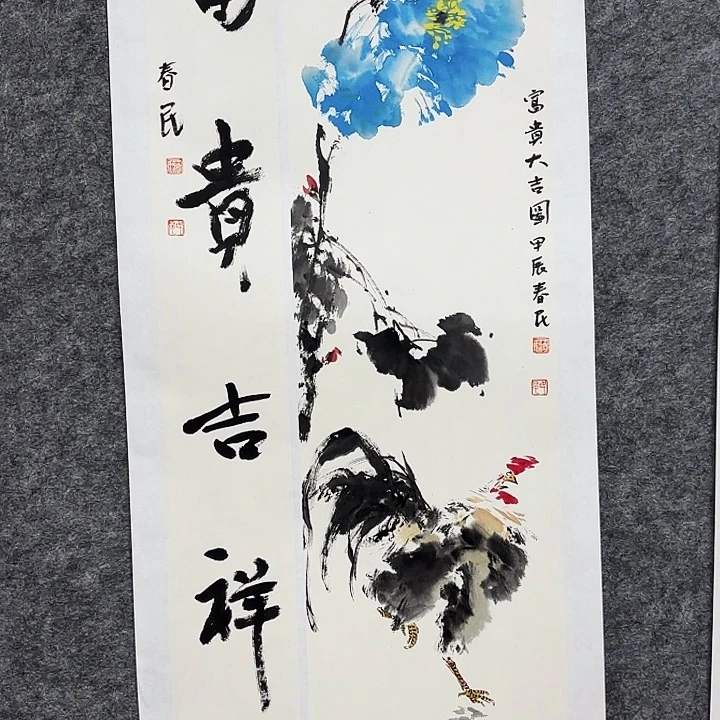 富貴大吉圖甲辰春民
貴吉祥
春民